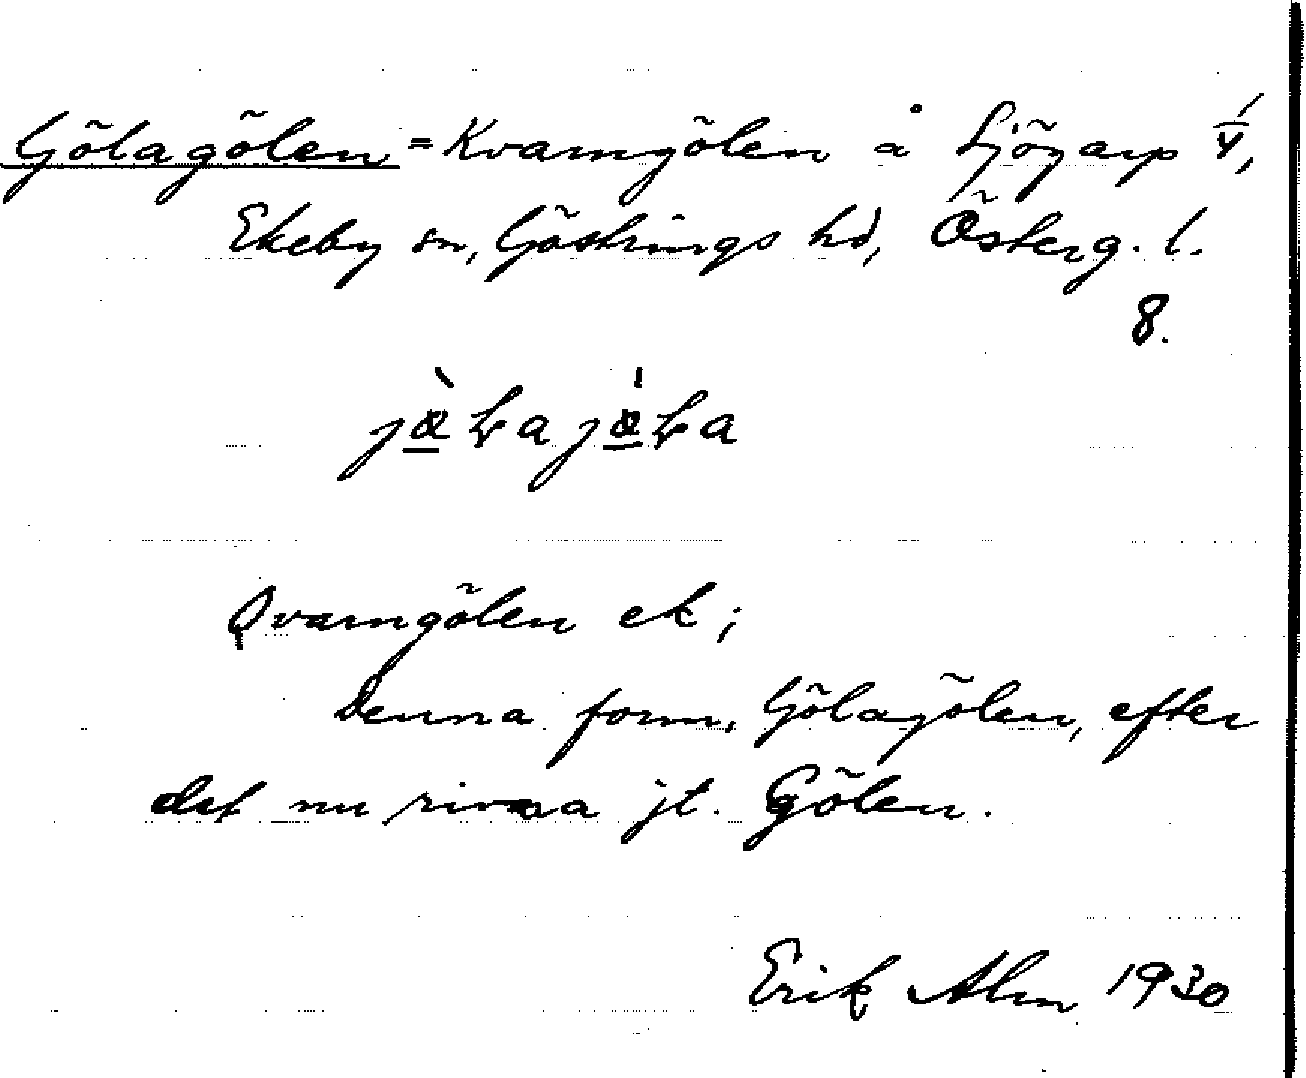 Gölagölen = Kvarngölen å Sjögarp 1/4,
Ekeby sn, Göstrings hd, Österg. l.
8.
Qvarngölen ek;
Denna form, Gölagölen, efter
det nu rivna jt. Gölen.
Erik Alm 1930